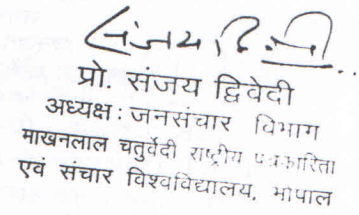 संजय द्विवेदी
प्रो. संजय द्विवेदी
अध्यक्ष : जनसंचार विभाग
माखनलाल चतुर्वेदी राष्ट्रीय पत्रकारिता
एवं संचार विश्वविद्यालय, भोपाल